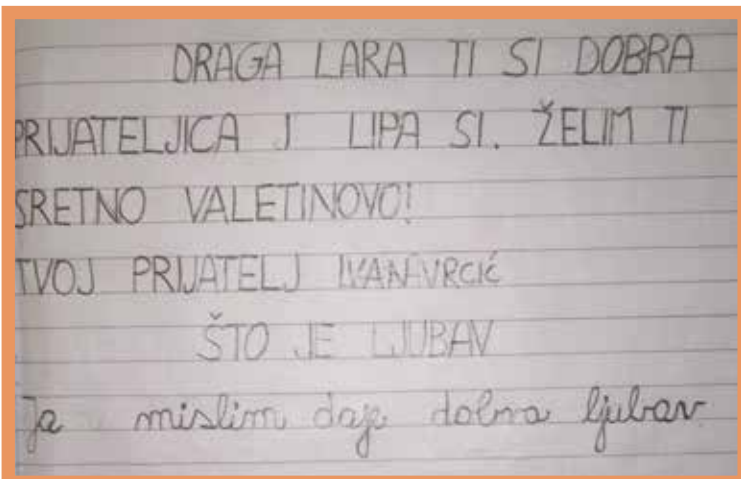 DRAGA LARA TI SI DOBRA
PRIJATELJICA I LIPA SI. ŽELIM TI
SRETNO VALETINOVO!
TVOJ PRIJATELJ IVAN VRCIĆ
ŠTO JE LJUBAV
Ja mislim daje dobra ljubav